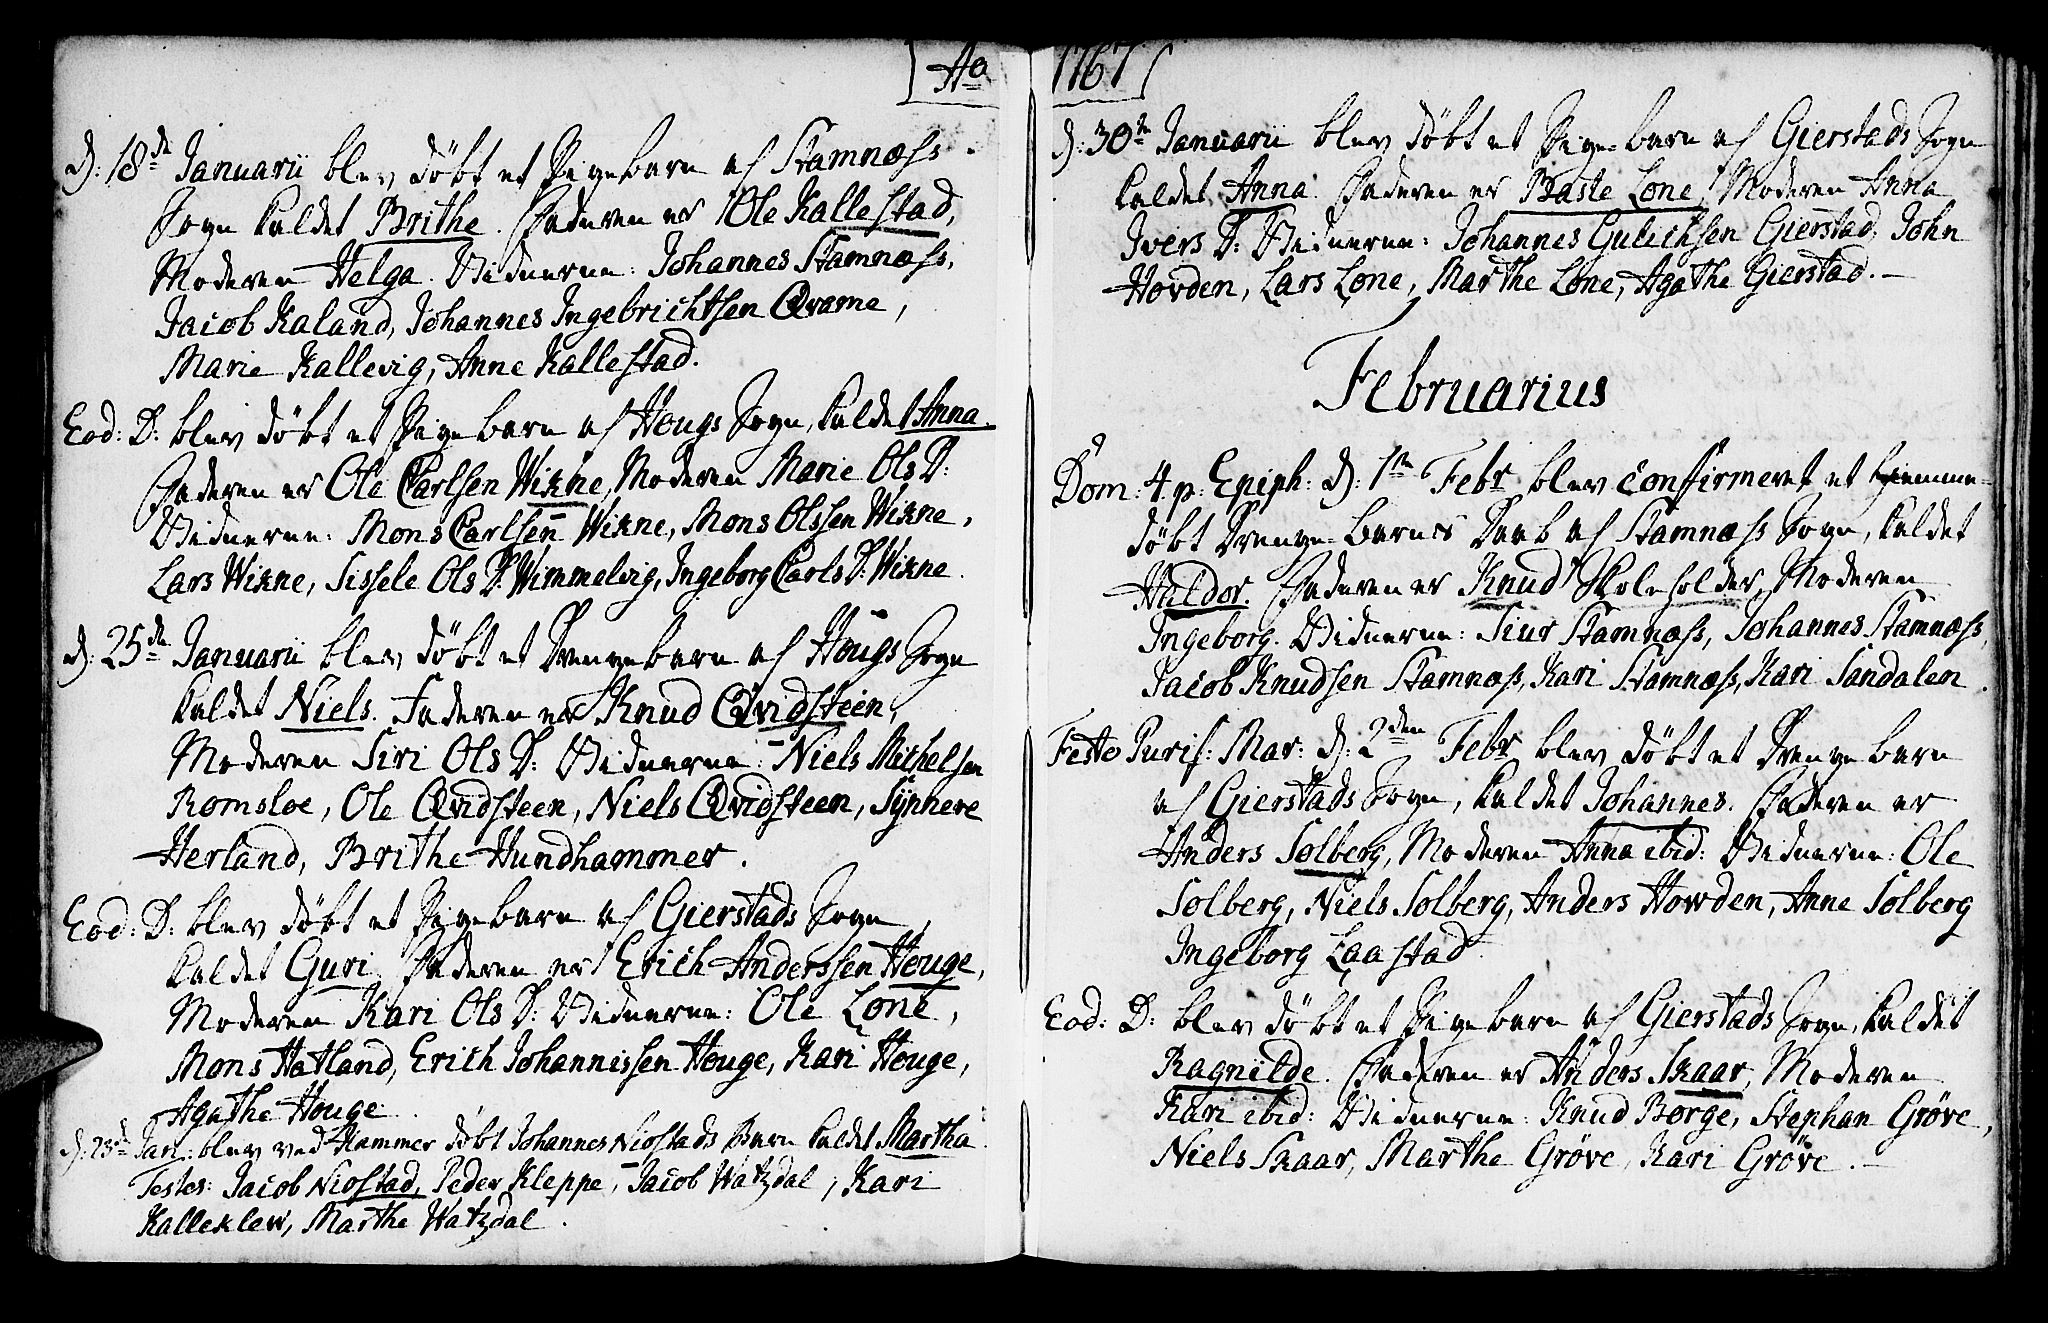 Ao
d: 18de Januarii blev døbt et Pigebarn af Stamnæss
Sogn kaldet Brithe. Faderen er Ole Kallestad,
Moderen Helga. Vidnerne: Johannes Stamnæss,
Jacob Kaland, Johannes Ingebrichtsen Qvame,
Marie Kallevig, Anne Kallestad.
Eod: D: blev døbt et Pigebarn af Hougs Sogn, kaldet Anna.
Faderen er Ole Carlsen Wikne, Moderen Marie Ols D:
Vidnerne: Mons Carlsen Wikne, Mons Olssen Wikne,
Lars Wikne, Sissele Ols D: Wimmelvig, Ingeborg Carls D: Wikne.
d: 25de Januarii blev døbt et Drengebarn af Hougs Sogn
kaldet Niels. Faderen er Knud Qvidsteen,
Moderen Siri Ols D: Vidnerne: Niels Michelsen
Romsloe, Ole Qvidsteen, Niels Qvidsteen, Synneve
Herland, Brithe Hundhammer.
Eod: D: blev døbt et Pigebarn af Gierstads Sogn,
kaldet Guri. Faderen er Erich Anderssen Houge,
Moderen Kari Ols D: Vidnerne: Ole Lone,
Mons Hatland, Erich Johannissen Houge, Kari Houge,
Agathe Houge.
d: 23d Jan: blev ved Hammer døbt Johannes Niostads Barn kaldet Martha.
Testes: Jacob Niostad, Peder Kleppe, Jacob Watzdal, Kari
Kalleklew, Marthe Watzdal.
1767
d: 30te Januarii blev døbt et Pige-barn af Gierstads Sogn
kaldet Anna. Faderen er Baste Lone, Moderen Anna
Ivers D: Vidnerne: Johannes Gulichsen Gierstad, John
Hovden, Lars Lone, Marthe Lone, Agathe Gierstad.
Februarius
Dom: 4 p: Epiph: d: 1te Febr blev confirmeret et hiemme-
døbt Drenge-Barns Daab af Stamnæss Sogn, kaldet
Haldor. Faderen er Knud Skoleholder, Moderen
Ingeborg. Vidnerne: Siur Stamnæss, Johannes Stamnæss,
Jacob Knudsen Stamnæss, Kari Stamnæss, Kari Sandalen.
Festo Purif: Mar: d: 2den Febr blev døbt et Drengebarn
af Gierstads Sogn, kaldet Johannes. Faderen er
Anders Solberg, Moderen Anna ibid: Vidnerne: Ole
Solberg, Niels Solberg, Anders Howden, Anne Solberg
Ingeborg Laastad.
Eod: D: blev døbt et Pigebarn af Gierstads Sogn, kaldet
Ragnilde. Faderen er Anders Skaar, Moderen
Kari ibid: Vidnerne: Knud Borge, Stephan Grøve,
Niels Skaar, Marthe Grøve, Kari Grøve.